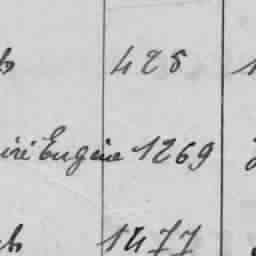 428
iré Eugène 1269
1477